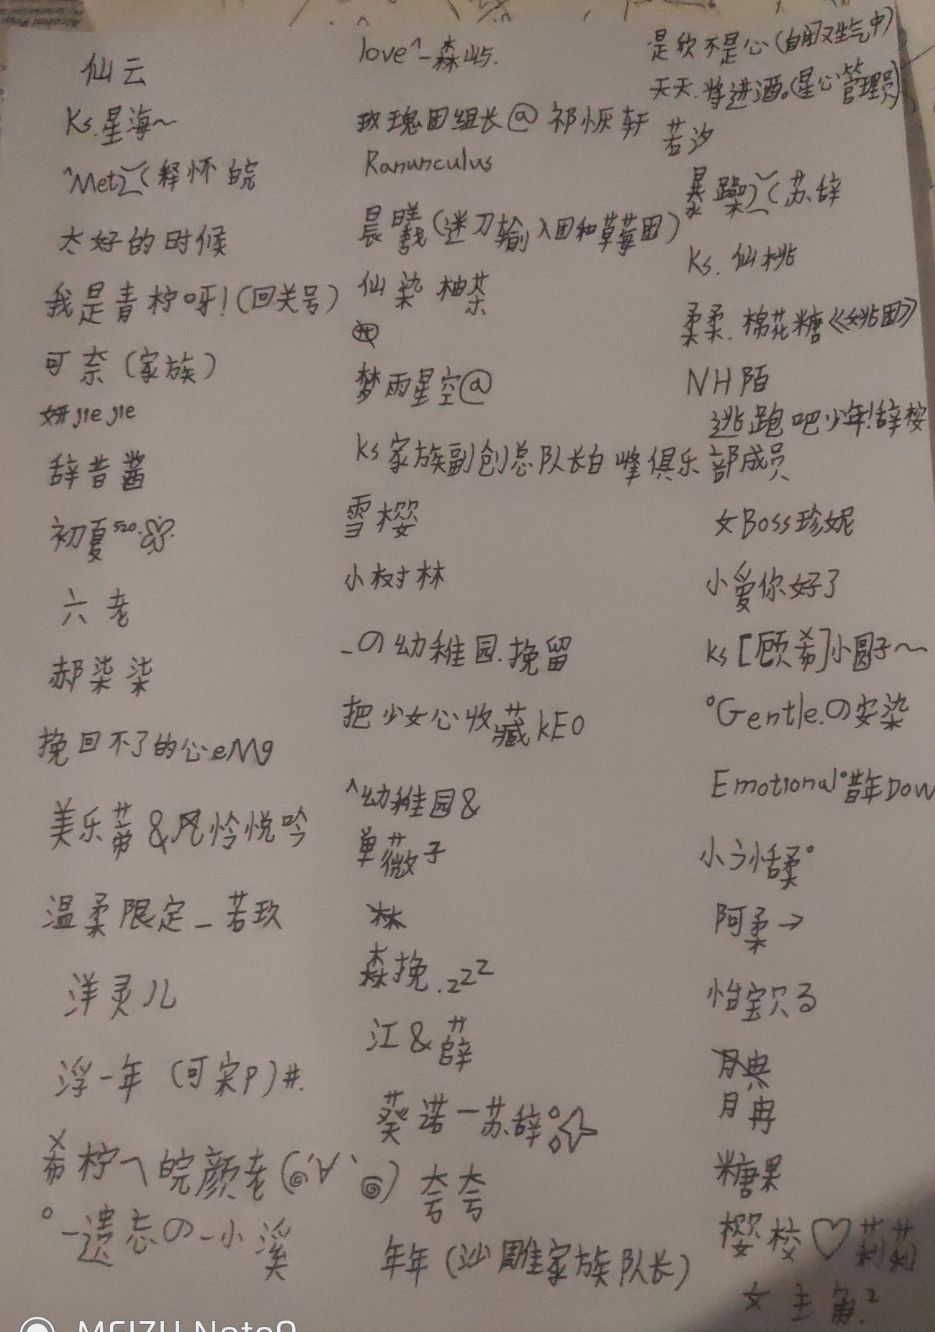 仙云
Ks.星海~
^Met ミく释怀皖
太好的时候
我是青柠呀!(回关号)
可奈(家族)
妍jiejie
辞昔酱
初夏520.
六老
郝柒柒
挽回不了的心eMg
美乐蒂&风怜悦吟
温柔限定_若玖
洋灵儿
浮一年(可宋P)#.
希柠乛皖颜老(@'∀`@)
°一遗忘の_小溪
love^_森屿.
玫瑰团组长@祁恹轩
Ranunculus
晨曦(迷刀输入团和草莓团)
仙染柚菜
梦雨星空@
Ks家族副创总队长白峰俱乐部成员
雪樱
小树林
_の幼稚园.挽留
把少女心收藏kEO
^幼稚园&
单薇子
林
森挽.zzZ
江&薛
葵诺一苏辞
夸夸
年年(沙雕家族队长)
是欣不是心(自闭又生气中)
天天.将进酒。(星心管理员)
若汐
暴躁ミく苏辞
Ks.仙桃
柔柔.棉花糖《姚团》
NH陌
逃跑吧少年!辞桉
女Boss珍妮
小爱你好了
ks[顾希]小圆子~
°Gentle.の安染
Emotional°昔年Dow
小兮恬柔°
阿柔→
怡宝贝る
月典
月冉
糖果
樱校♡莉莉
女主角.²
MEIZU Note9